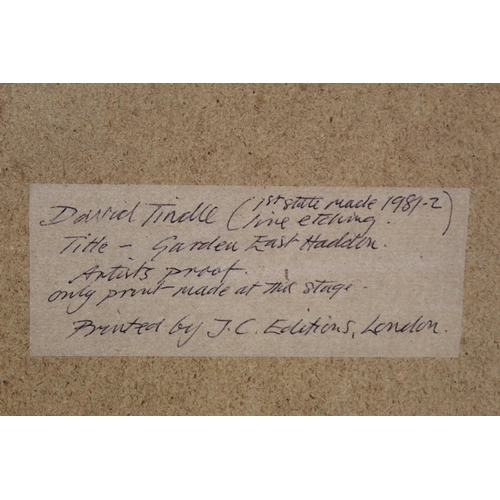 David Tindle (1st state made 1981-2)
line etching.
Title - Garden East Haddon.
Artists proof.
only print made at this stage.
Printed by J.C. Editions, London.